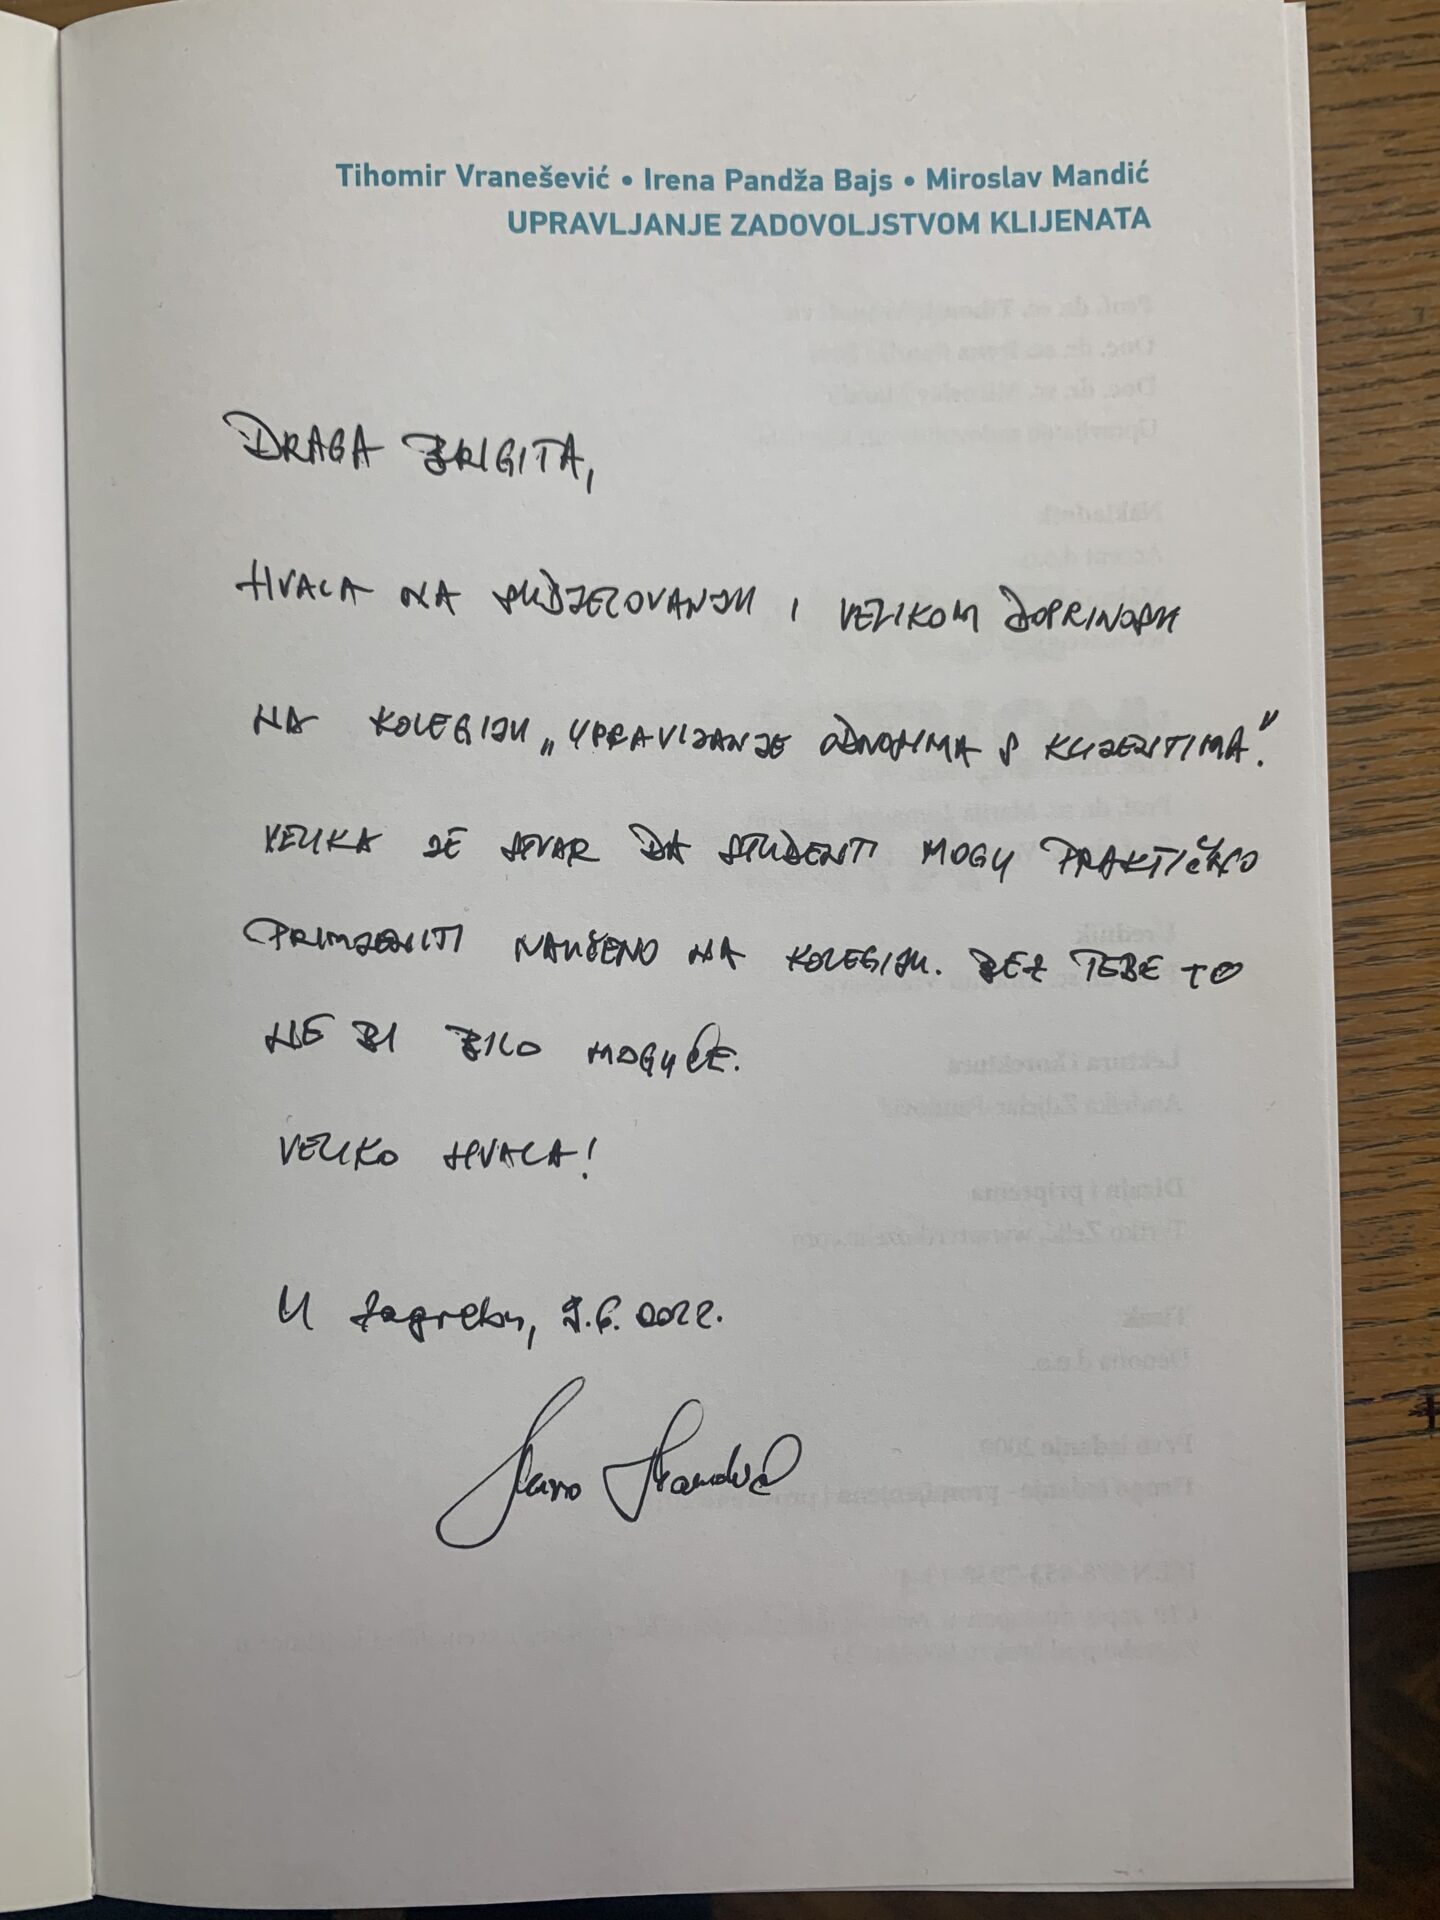 Tihomir Vranešević • Irena Pandža Bajs • Miroslav Mandić
UPRAVLJANJE ZADOVOLJSTVOM KLIJENATA
DRAGA BRIGITA,
HVALA NA SUDJELOVANJU I VELIKOM DOPRINOSU
NA KOLEGIJU „UPRAVLJANJE ODNOSIMA S KLIJENTIMA".
VELIKA JE STVAR DA STUDENTI MOGU PRAKTIČNO
PRIMJENITI NAUČENO NA KOLEGIJU. BEZ TEBE TO
NE BI BILO MOGUĆE.
VELIKO HVALA!
U Zagrebu, 9.6.2022.
Mandić